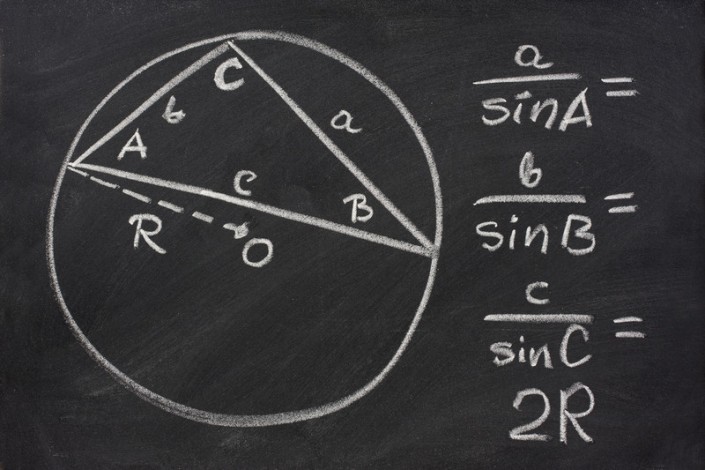 C
b
a
A
c
B
R
O
a
sinA =
b
sinB =
c
sinC =
2R